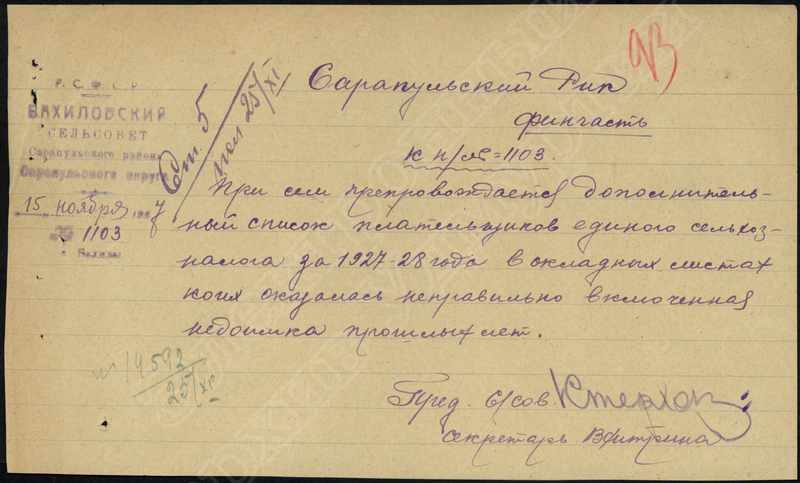 Р.С.Ф.С.Р.
ВАХИЛОВСКИЙ
СЕЛЬСОВЕТ
Сарапульского района
Сарапульского округа
15 ноября 1927
№ 1103
с. Вахилы
25/XI
93
Сарапульский Рик
финчасть
к п/№=1103.
При сем препровождается дополнитель-
ный список плательщиков единого сельхоз-
налога за 1927-28 года в окладных листах
коих оказалась неправильно включенная
недоимка прошлых лет.
14592
25/XI
Пред. с/сов.
секретарь